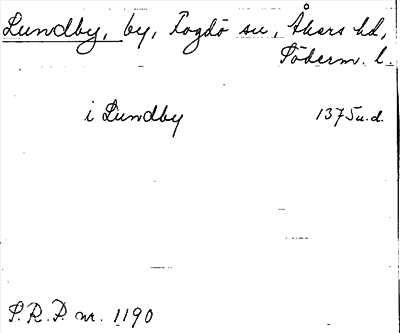 Lundby, by, Togdö sn, Åkers hd,
Söderm. l.
i Lundby 1375 u.d.
S.R.P. nr. 1190